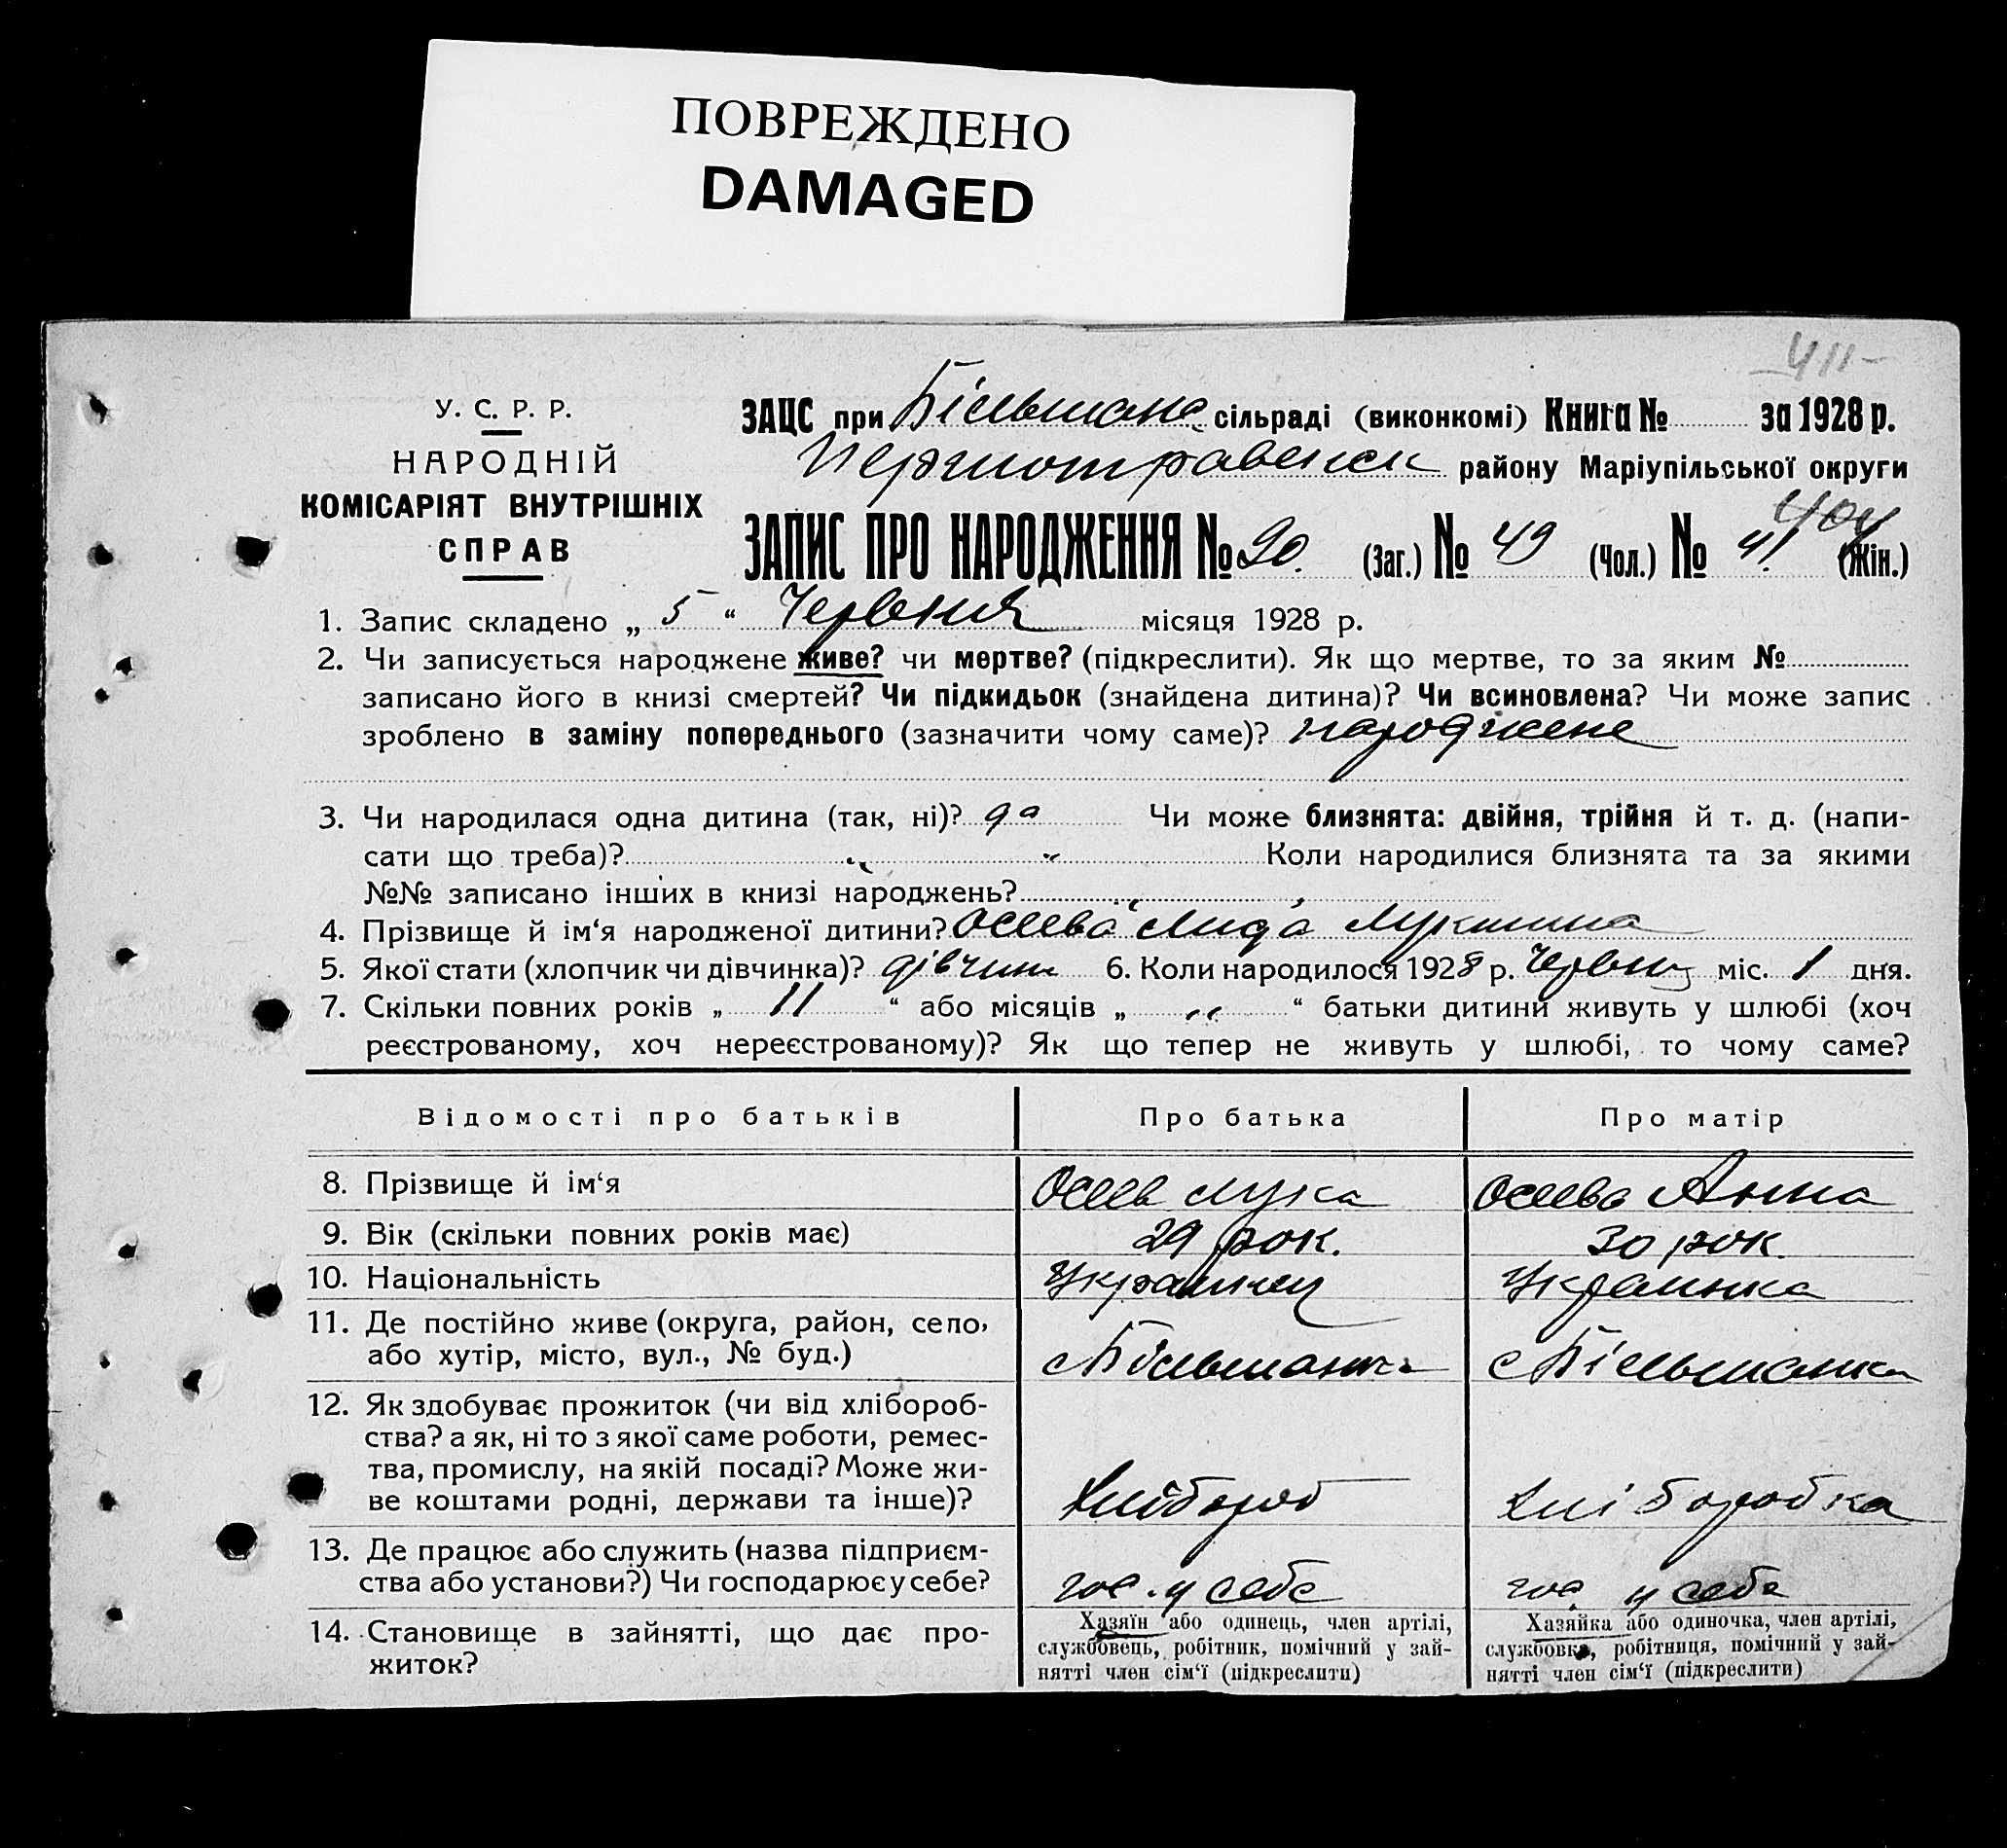 ПОВРЕЖДЕНО
DAMAGED
411-
У. С. Р. Р.
НАРОДНІЙ
КОМІСАРІЯТ ВНУТРІШНІХ
СПРАВ
ЗАЦС при Більшанс. сільраді (виконкомі) Книга № за 1928 р.
Першотравенск району Маріупільської округи
404
ЗАПИС ПРО НАРОДЖЕННЯ № 90. (Заг.) № 49 (Чол.) № 41 (Жін.)
1. Запис складено „ 5 “ Червня місяця 1928 р.
2. Чи записується народжене живе? чи мертве? (підкреслити). Як що мертве, то за яким №
записано його в книзі смертей? Чи підкидьок (знайдена дитина)? Чи всиновлена? Чи може запис
зроблено в заміну попереднього (зазначити чому саме)? народжене
3. Чи народилася одна дитина (так, ні)? да Чи може близнята: двійня, трійня й т. д. (напи-
сати що треба)? Коли народилися близнята та за якими
№№ записано інших в книзі народжень?
4. Прізвище й ім‘я народженої дитини? Осеева Лида Лукинична
5. Якої стати (хлопчик чи дівчинка)? дівчин 6. Коли народилося 1928 р. Червня міс. 1 дня.
7. Скільки повних років „ 11 “ або місяців „ „ “ батьки дитини живуть у шлюбі (хоч
реєстрованому, хоч нереєстрованому)? Як що тепер не живуть у шлюбі, то чому саме?
Відомості про батьків Про батька Про матір
8. Прізвище й ім‘я Осеев Лука Осеева Анна
9. Вік (скільки повних років має) 29 рок. 30 рок.
10. Національність Украинец Украинка
11. Де постійно живе (округа, район, село,
або хутір, місто, вул., № буд.) с Більшанка с Більшанка
12. Як здобуває прожиток (чи від хлібороб-
ства? а як, ні то з якої саме роботи, ремес-
тва, промислу, на якій посаді? Може жи-
ве коштами родні, держави та інше)? Хлібороб Хліборобка
13. Де працює або служить (назва підприєм-
ства або установи?) Чи господарює у себе? гос. у себе гос. у себе
14. Становище в зайнятті, що дає про-
житок?
Хазяїн або одинець, член артілі,
службовець, робітник, помічний у зай-
нятті член сім‘ї (підкреслити)
Хазяйка або одиночка, член артілі,
службовка, робітниця, помічний у зай-
нятті член сім‘ї (підкреслити)